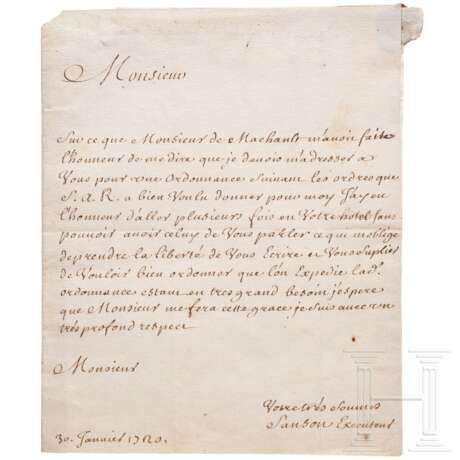 Monsieur
Sur ce que Monsieur de Machault m'avoit faite
l'honneur de me dire que je devois m'adresser a
Vous pour une Ordonnance Suivant les ordres que
S. A. R. a bien Voulu donner pour moy J'ay eu
l'honneur d'aller plusieurs fois en Votre hotel sans
pouvoir avoir celuy de Vous parler ce qui m'oblige
de prendre la liberté de Vous Ecrire et Vous Suplier
de Vouloir bien ordonner que l'on Expedie lad.
ordonnance estant en tres grand besoin j'espere
que Monsieur me fera cette grace je suis avec un
trés profond respect
Monsieur
Votre trés Soumis
Sanson Executeur
30. Janvier 1720.